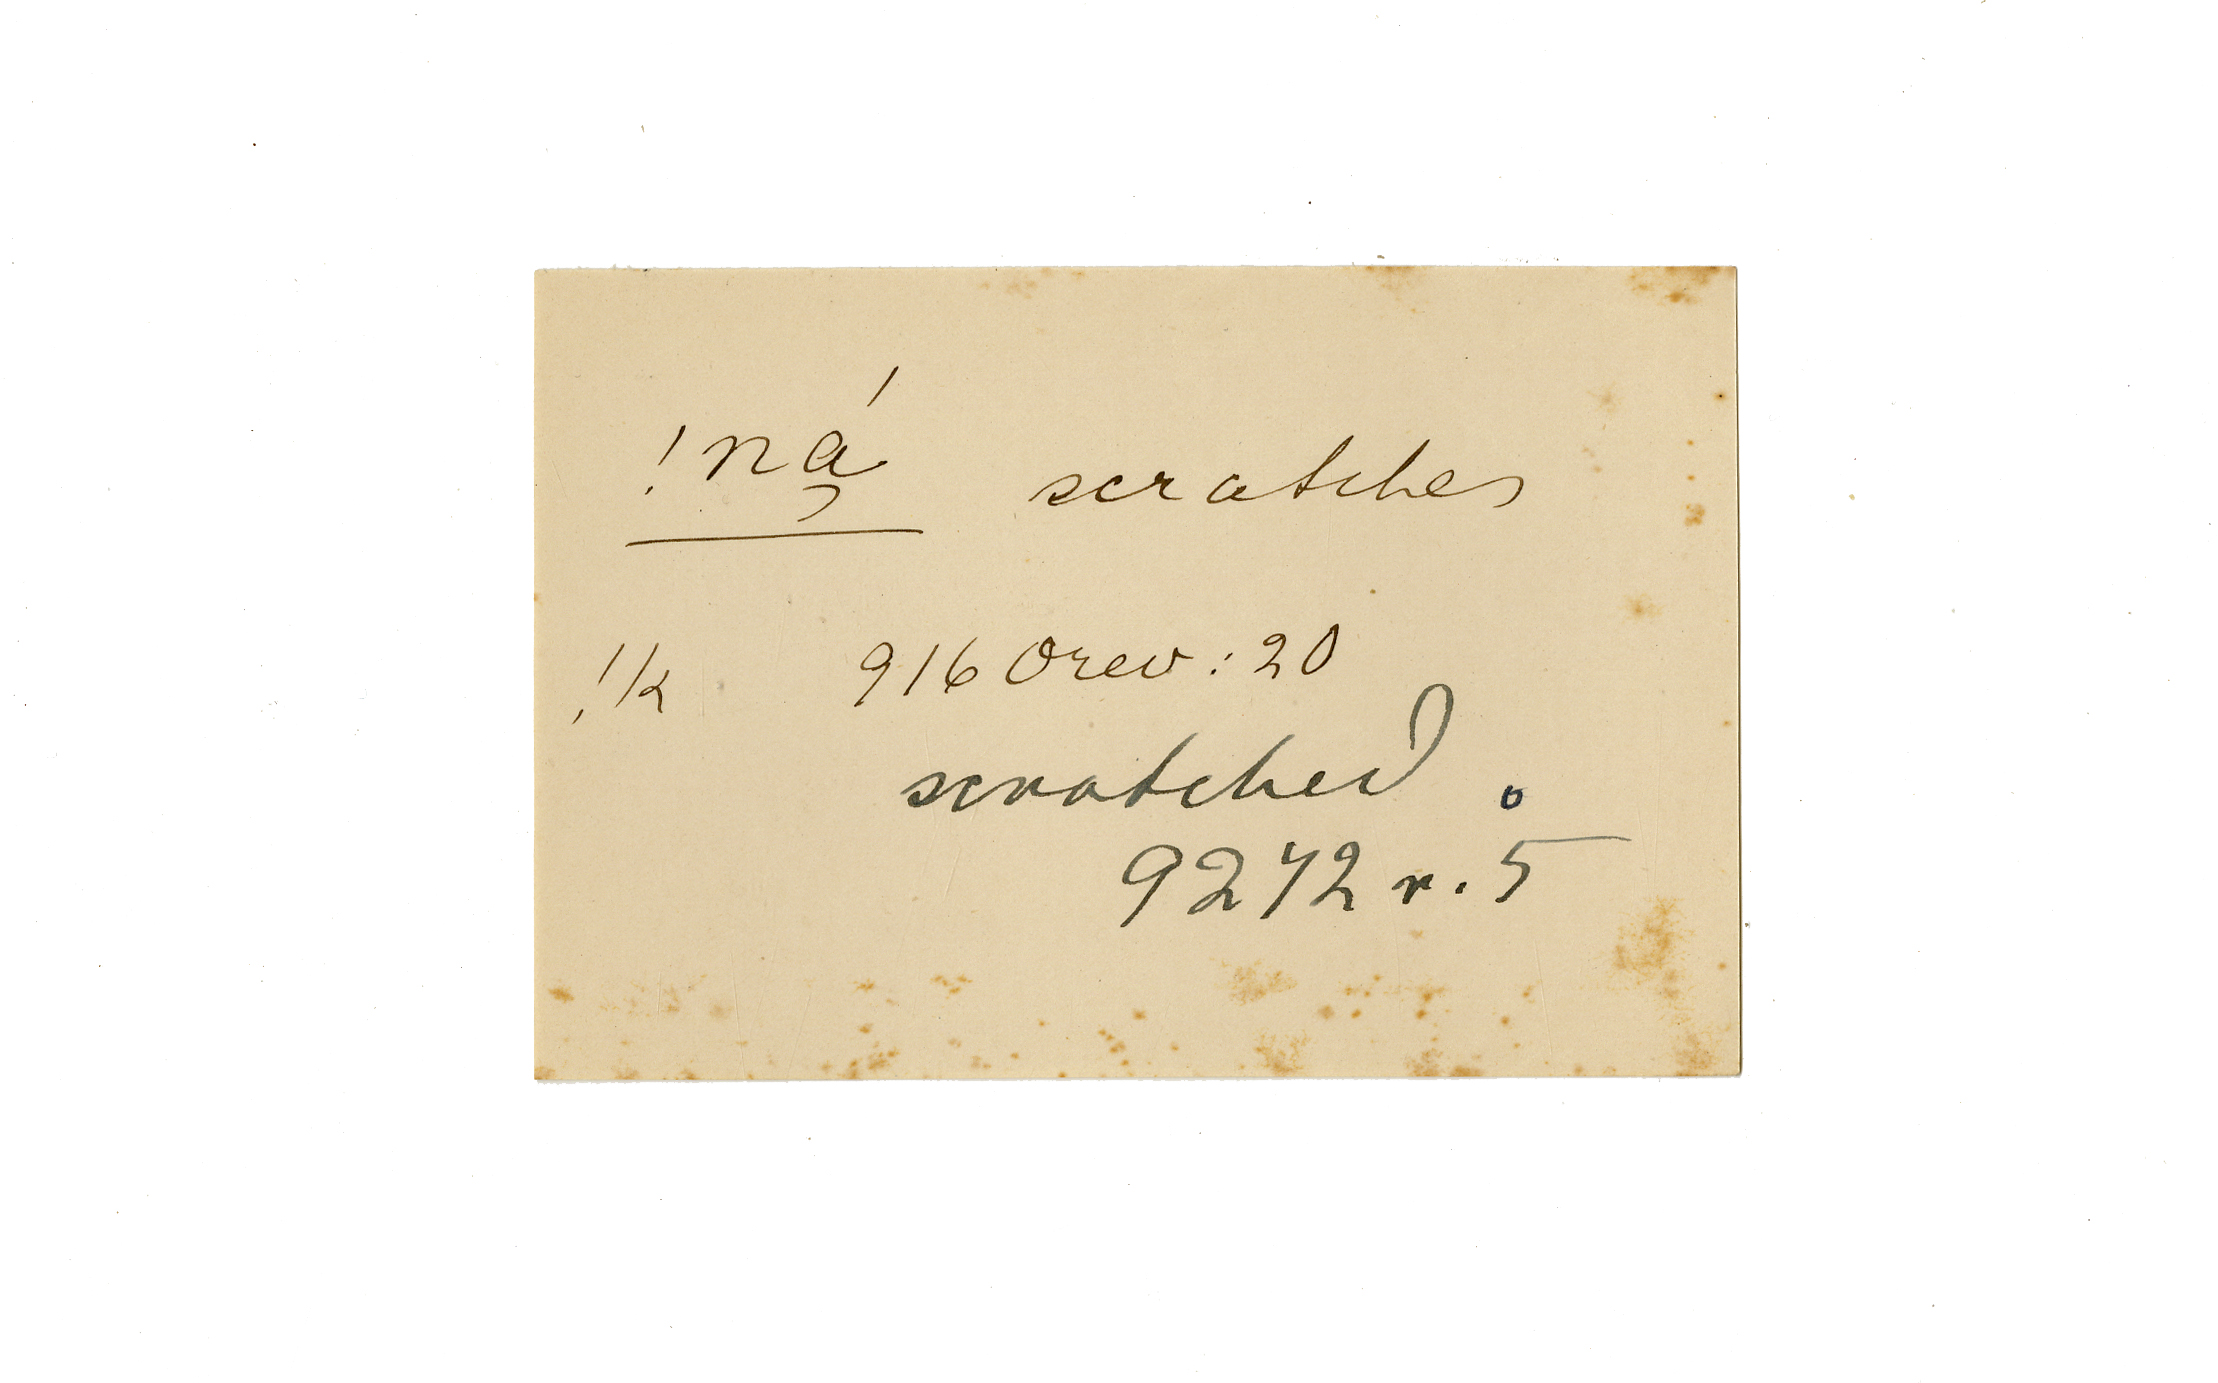 !ná̡ scratches
!k 9160 rev: 20
scratched.
9272 r. 5